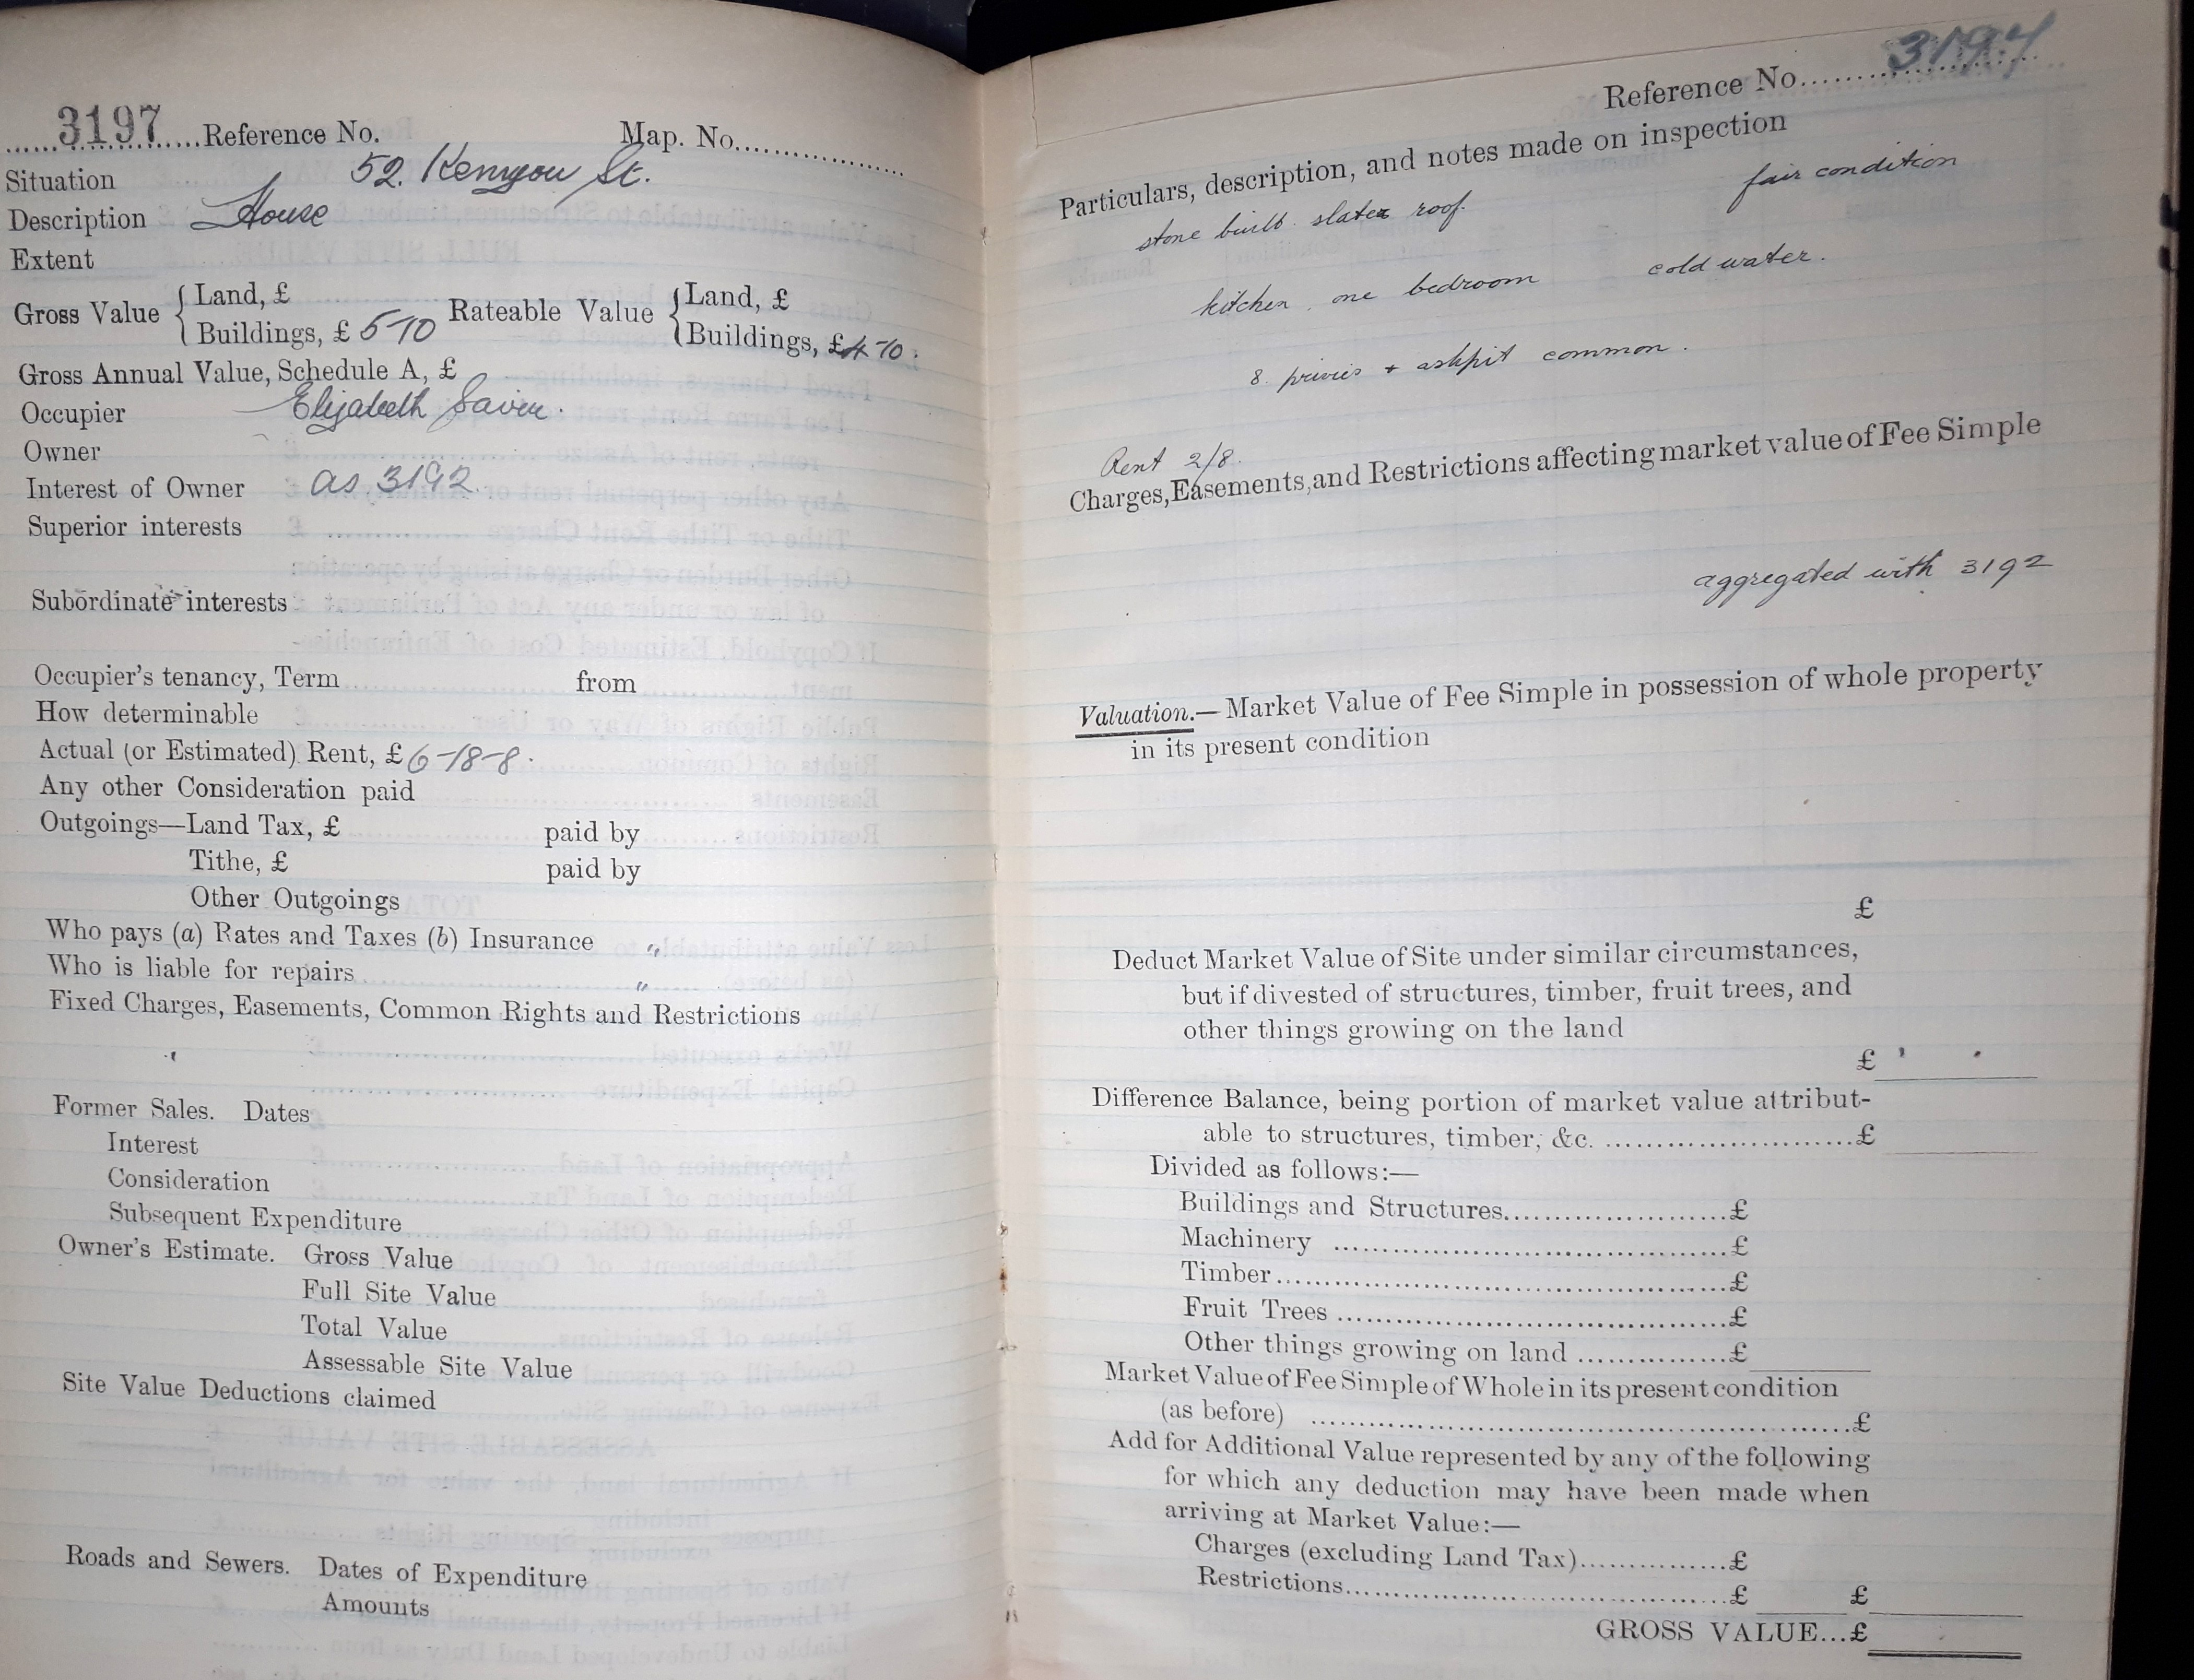 3197 Reference No. Map. No.
Situation 52. Kenyon St.
Description House
Extent
Gross Value { Land, £ Rateable Value { Land, £
Buildings, £ 5-10 Buildings, £ 4-10.
Gross Annual Value, Schedule A, £
Occupier Elizabeth
Owner
Interest of Owner as 3192.
Superior interests
Subordinate interests
Occupier's tenancy, Term from
How determinable
Actual (or Estimated) Rent, £ 6-18-8.
Any other Consideration paid
Outgoings—Land Tax, £ paid by
Tithe, £ paid by
Other Outgoings
Who pays (a) Rates and Taxes (b) Insurance "
Who is liable for repairs "
Fixed Charges, Easements, Common Rights and Restrictions
Former Sales. Dates
Interest
Consideration
Subsequent Expenditure
Owner's Estimate. Gross Value
Full Site Value
Total Value
Assessable Site Value
Site Value Deductions claimed
Roads and Sewers. Dates of Expenditure
Amounts
Reference No.
Particulars, description, and notes made on inspection
stone built slates roof. fair condition
kitchen, one bedroom cold water.
8. privies + ashpit common.
Rent 2/8.
Charges, Easements, and Restrictions affecting market value of Fee Simple
aggregated with 3192
Valuation.—Market Value of Fee Simple in possession of whole property
in its present condition
£
Deduct Market Value of Site under similar circumstances,
but if divested of structures, timber, fruit trees, and
other things growing on the land
£
Difference Balance, being portion of market value attribut-
able to structures, timber, &c. £
Divided as follows:—
Buildings and Structures £
Machinery £
Timber £
Fruit Trees £
Other things growing on land £
Market Value of Fee Simple of Whole in its present condition
(as before) £
Add for Additional Value represented by any of the following
for which any deduction may have been made when
arriving at Market Value:—
Charges (excluding Land Tax) £
Restrictions £ £
GROSS VALUE...£